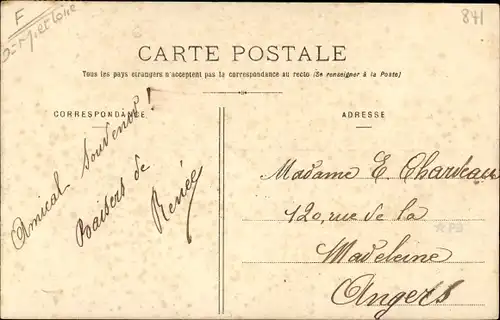 F
841
CARTE POSTALE
Tous les pays étrangers n'acceptent pas la correspondance au recto (Se renseigner à la Poste)
CORRESPONDANCE
ADRESSE
Amical souvenir!
Baisers de
Renée
Madame E. Chardeau
120, rue de la
Madeleine
Angers